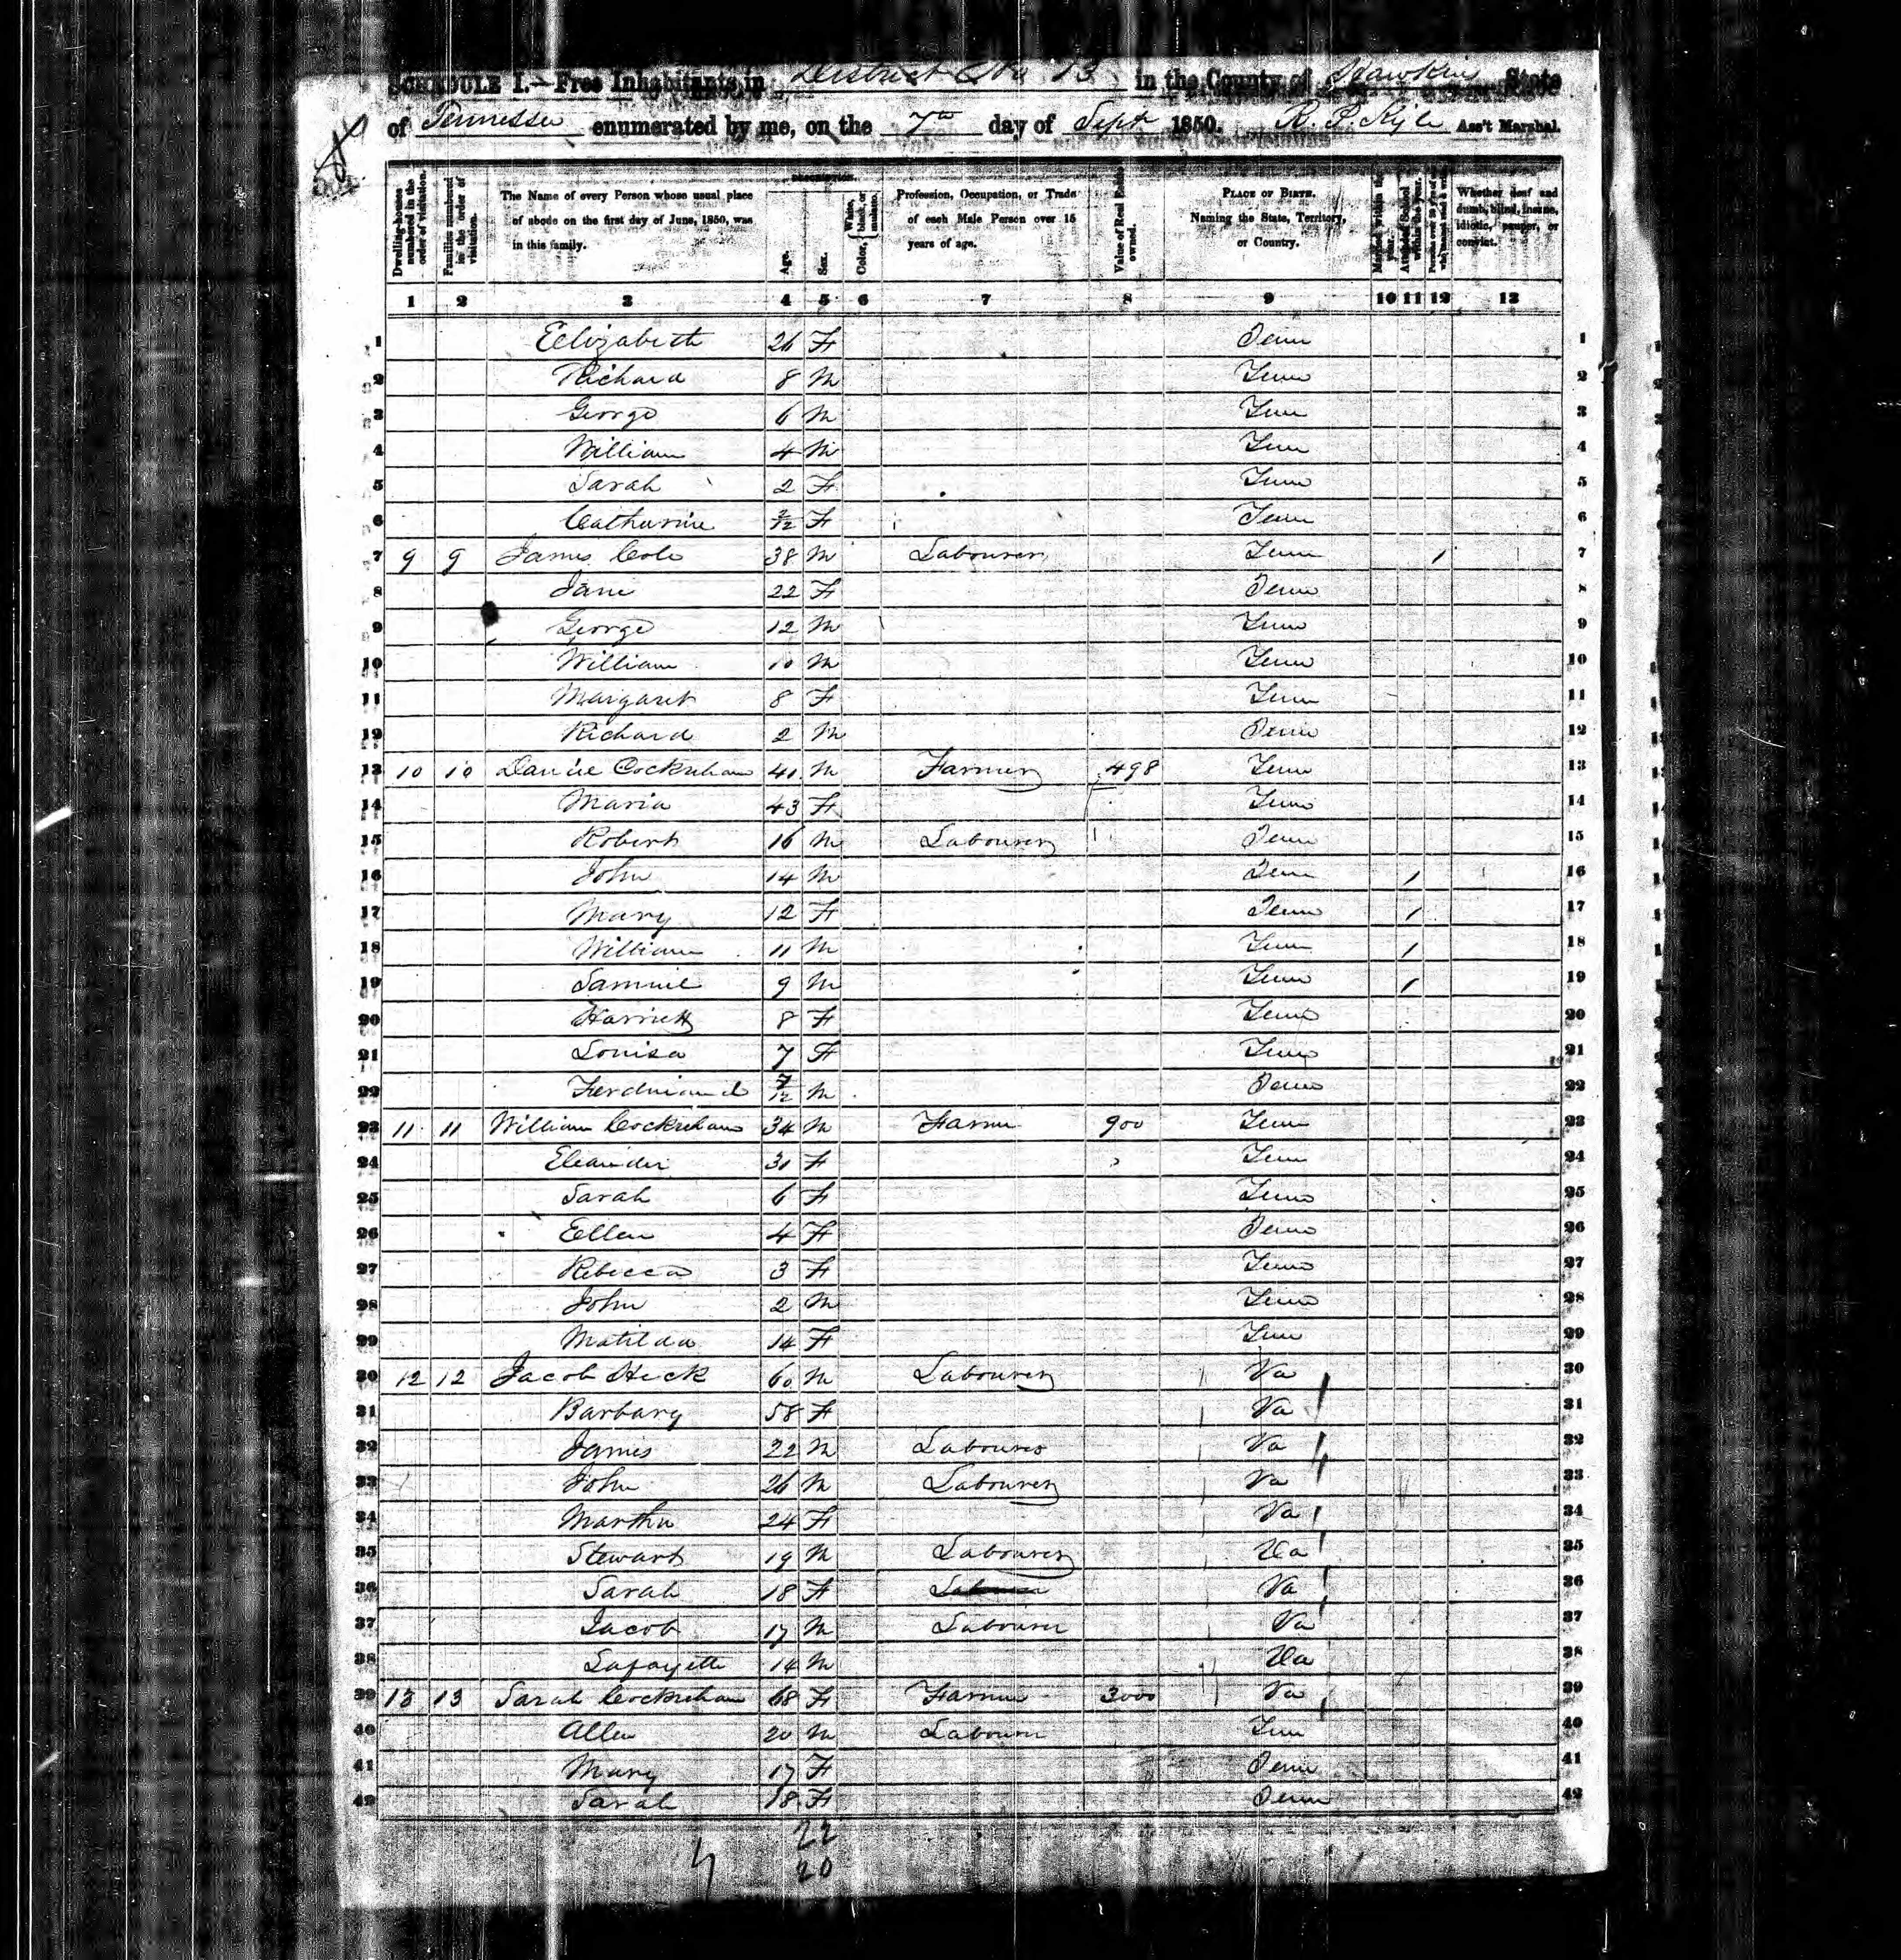 SCHEDULE I.—Free Inhabitants in District No 13 in the County of Hawkins State
of Tennessee enumerated by me, on the 7th day of Sept 1850. R. P. Kyle Ass't Marshal.
Dwelling-houses numbered in the order of visitation.
Families numbered in the order of visitation.
The Name of every Person whose usual place of abode on the first day of June, 1850, was in this family.
DESCRIPTION.
Age.
Sex.
Color, White, black, or mulatto.
Profession, Occupation, or Trade of each Male Person over 15 years of age.
Value of Real Estate owned.
PLACE OF BIRTH. Naming the State, Territory, or Country.
Married within the year.
Attended School within the year.
Persons over 20 y'rs of age who cannot read & write.
Whether deaf and dumb, blind, insane, idiotic, pauper, or convict.
1 2 3 4 5 6 7 8 9 10 11 12 13
1 Elizabeth 26 F Tenn 1
2 Richard 8 M Tenn 2
3 George 6 M Tenn 3
4 William 4 M Tenn 4
5 Sarah 2 F Tenn 5
6 Catharine 2/12 F Tenn 6
7 9 9 James Cole 38 M Labourer Tenn / 7
8 Jane 22 F Tenn 8
9 George 12 M Tenn 9
10 William 10 M Tenn 10
11 Margaret 8 F Tenn 11
12 Richard 2 M Tenn 12
13 10 10 Daniel Cockreham 40 M Farmer 498 Tenn 13
14 Maria 43 F Tenn 14
15 Robert 16 M Labourer Tenn 15
16 John 14 M Tenn / 16
17 Mary 12 F Tenn / 17
18 William 11 M Tenn / 18
19 Samuel 9 M Tenn / 19
20 Harriett 8 F Tenn 20
21 Louisa 7 F Tenn 21
22 Ferdinand 7/12 M Tenn 22
23 11 11 William Cockreham 34 M Farmer 900 Tenn 23
24 Eleander 30 F Tenn 24
25 Sarah 6 F Tenn 25
26 Ellen 4 F Tenn 26
27 Rebecca 3 F Tenn 27
28 John 2 M Tenn 28
29 Matilda 14 F Tenn 29
30 12 12 Jacob Heck 60 M Labourer Va 30
31 Barbary 58 F Va 31
32 James 22 M Labourer Va 32
33 John 26 M Labourer Va 33
34 Martha 24 F Va 34
35 Stewart 19 M Labourer Va 35
36 Sarah 18 F Va 36
37 Jacob 17 M Labourer Va 37
38 Lafayette 14 M Va 38
39 13 13 Sarah Cockreham 68 F Farmer 3000 Va 39
40 Allen 20 M Labourer Tenn 40
41 Mary 17 F Tenn 41
42 Sarah 18 F Tenn 42
22
20